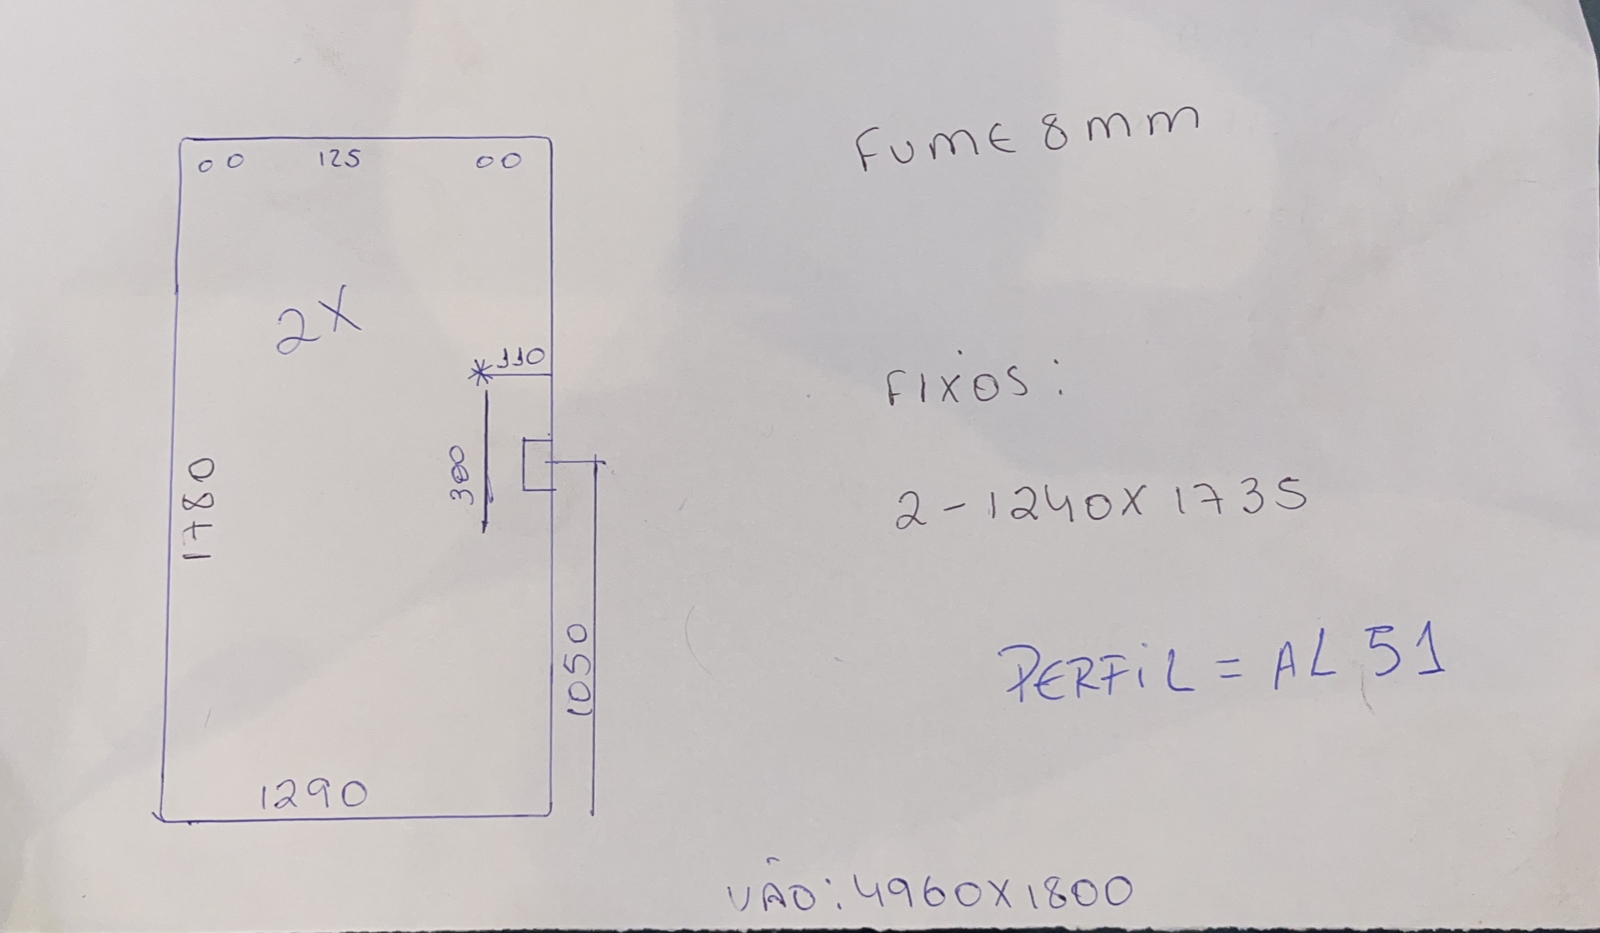 FUME 8mm
oo 125 oo
2X
*110
FIXOS:
300
1780
2-1240X1735
1050
PERFiL = AL 51
1290
VÃO: 4960X1800